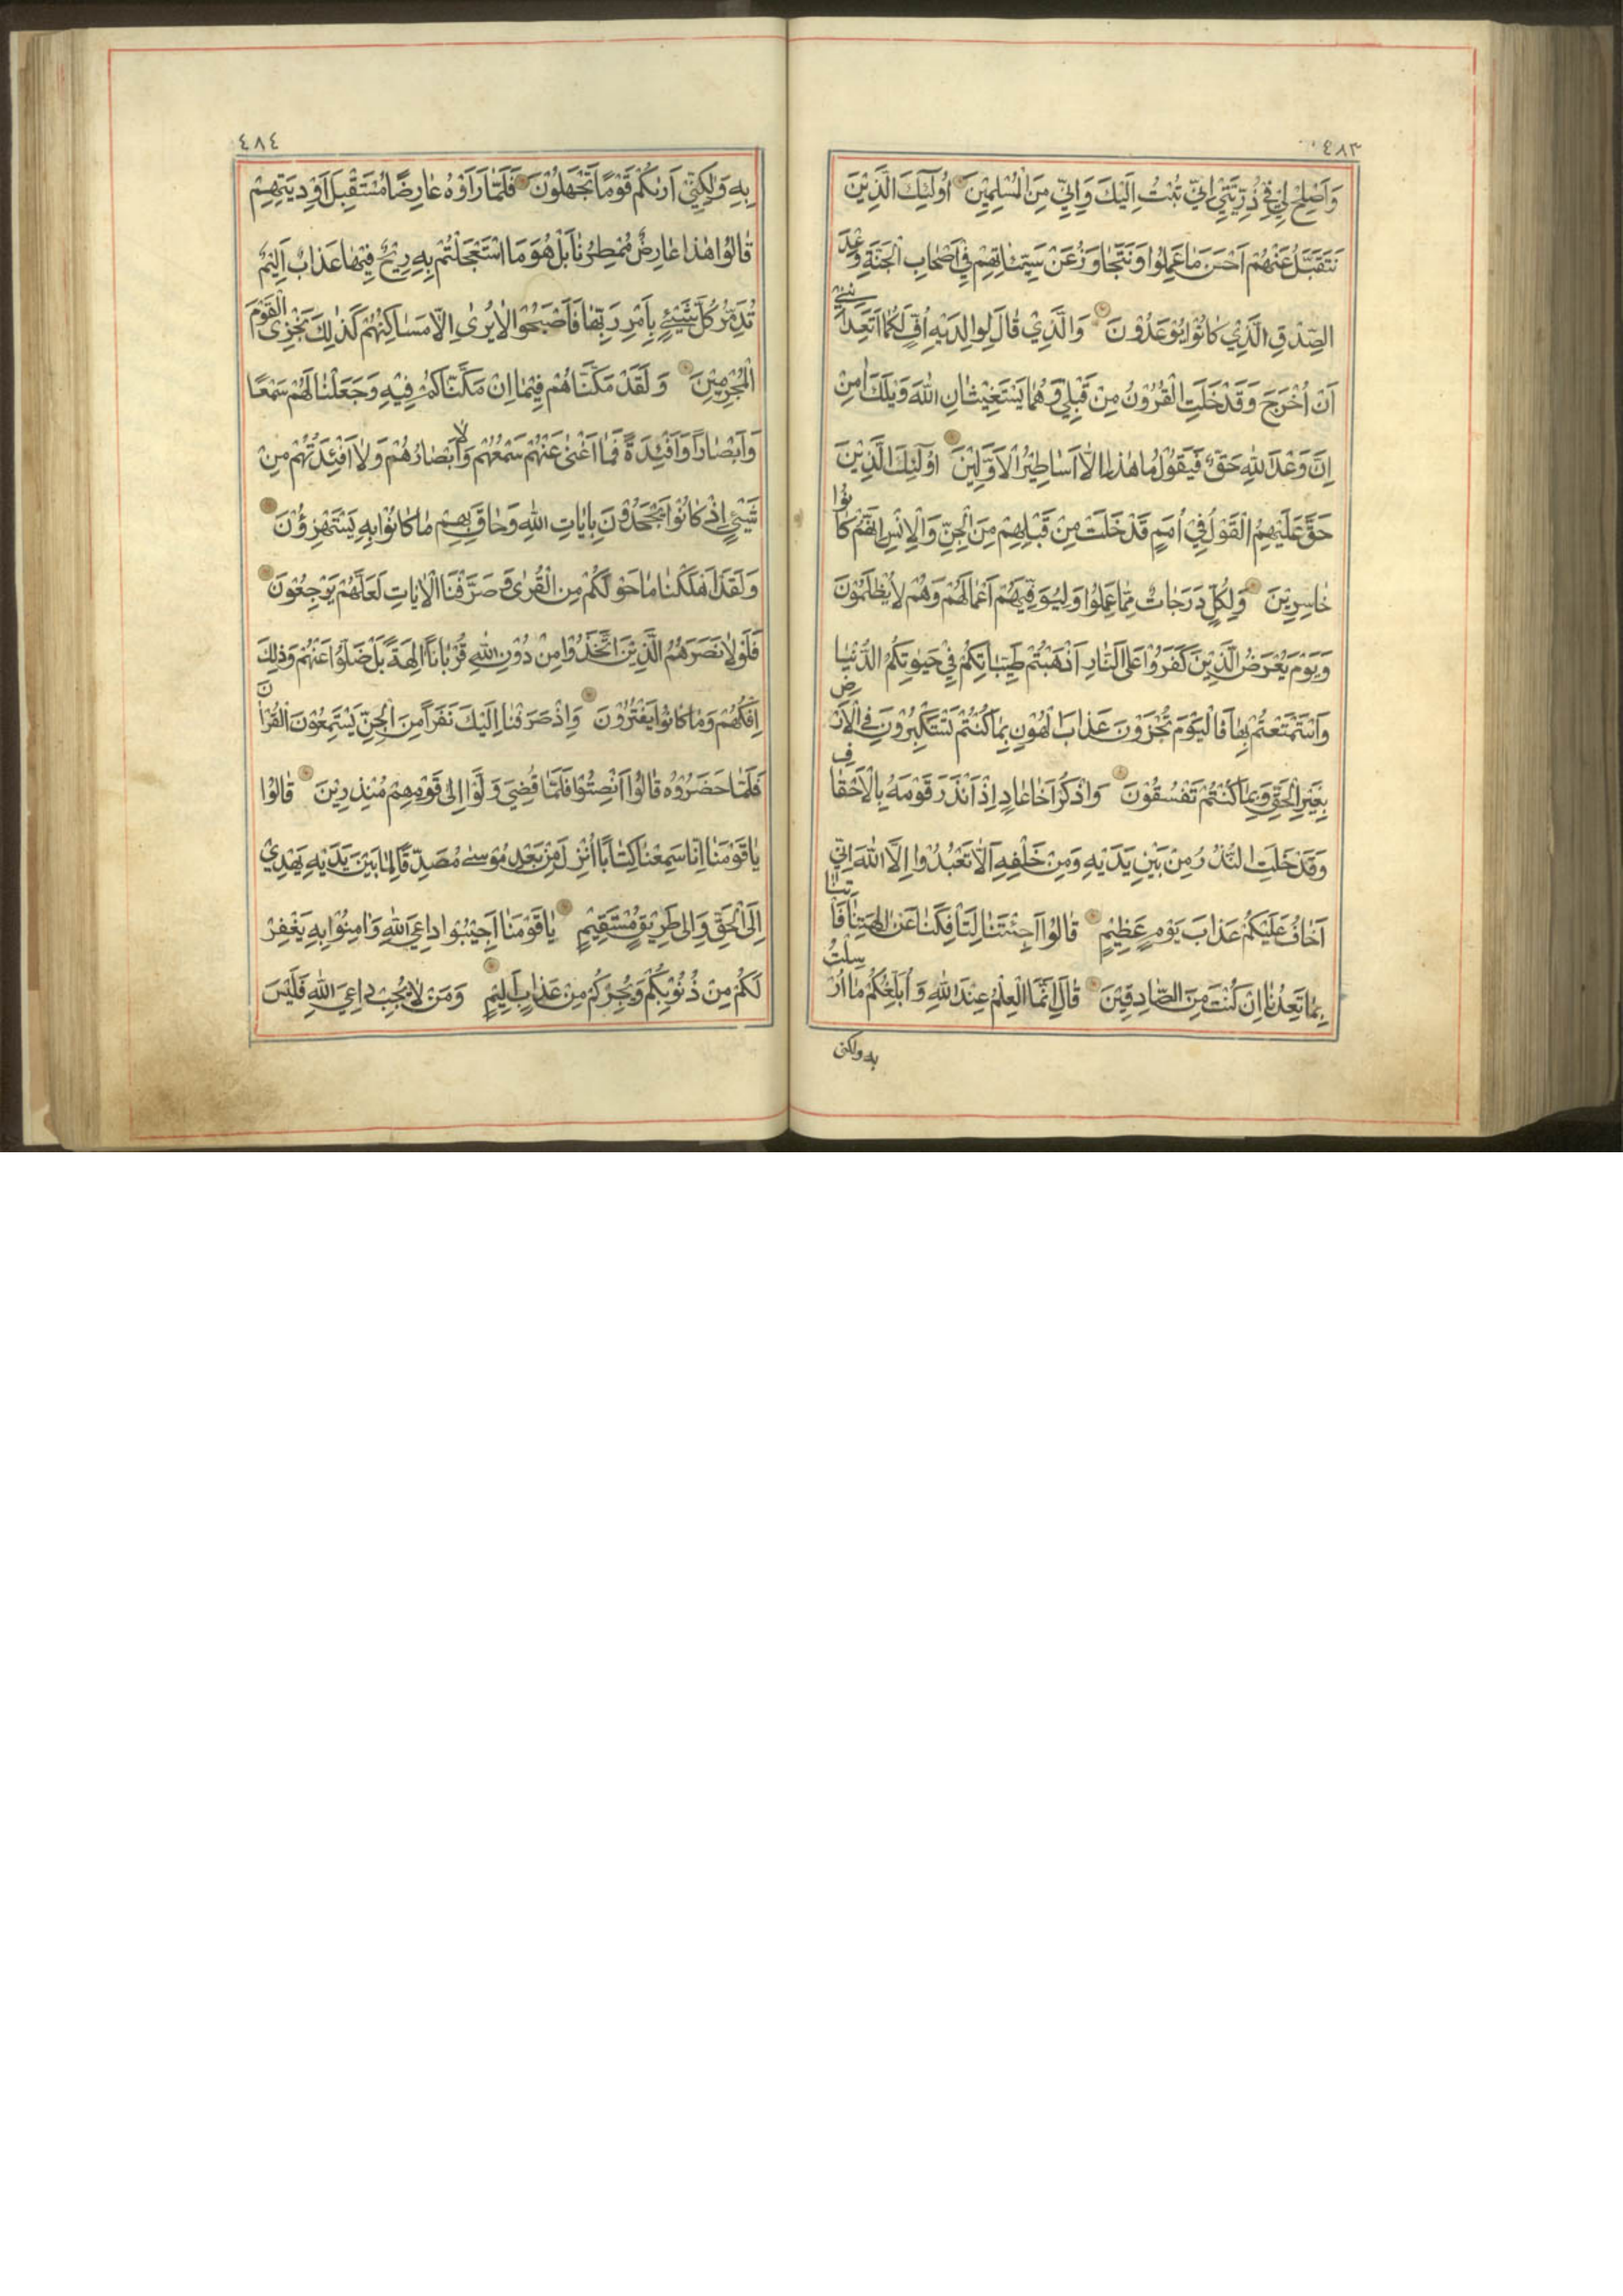 ٤٨٣
وَاَصْلِحْ لِيْ فِيْ ذُرِّيَّتِيْ اِنِّيْ تُبْتُ اِلَيْكَ وَاِنِّيْ مِنَ الْمُسْلِمِيْنَ اُولٰٓئِكَ الَّذِيْنَ
نَتَقَبَّلُ عَنْهُمْ اَحْسَنَ مَا عَمِلُوْا وَنَتَجَاوَزُ عَنْ سَيِّئَاتِهِمْ فِيْ اَصْحَابِ الْجَنَّةِ وَعْدَ
الصِّدْقِ الَّذِيْ كَانُوْا يُوْعَدُوْنَ وَالَّذِيْ قَالَ لِوَالِدَيْهِ اُفٍّ لَكُمَا اَتَعِدَانِنِيْ
اَنْ اُخْرَجَ وَقَدْ خَلَتِ الْقُرُوْنُ مِنْ قَبْلِيْ وَهُمَا يَسْتَغِيْثَانِ اللهَ وَيْلَكَ اٰمِنْ
اِنَّ وَعْدَ اللهِ حَقٌّ فَيَقُوْلُ مَا هٰذَا اِلَّا اَسَاطِيْرُ الْاَوَّلِيْنَ اُولٰٓئِكَ الَّذِيْنَ
حَقَّ عَلَيْهِمُ الْقَوْلُ فِيْ اُمَمٍ قَدْ خَلَتْ مِنْ قَبْلِهِمْ مِنَ الْجِنِّ وَالْاِنْسِ اِنَّهُمْ كَانُوْا
خَاسِرِيْنَ وَلِكُلٍّ دَرَجَاتٌ مِمَّا عَمِلُوْا وَلِيُوَفِّيَهُمْ اَعْمَالَهُمْ وَهُمْ لَا يُظْلَمُوْنَ
وَيَوْمَ يُعْرَضُ الَّذِيْنَ كَفَرُوْا عَلَى النَّارِ اَذْهَبْتُمْ طَيِّبَاتِكُمْ فِيْ حَيٰوتِكُمُ الدُّنْيَا
وَاسْتَمْتَعْتُمْ بِهَا فَالْيَوْمَ تُجْزَوْنَ عَذَابَ الْهُوْنِ بِمَا كُنْتُمْ تَسْتَكْبِرُوْنَ فِي الْاَرْضِ
بِغَيْرِ الْحَقِّ وَبِمَا كُنْتُمْ تَفْسُقُوْنَ وَاذْكُرْ اَخَا عَادٍ اِذْ اَنْذَرَ قَوْمَهُ بِالْاَحْقَافِ
وَقَدْ خَلَتِ النُّذُرُ مِنْ بَيْنِ يَدَيْهِ وَمِنْ خَلْفِهِ اَلَّا تَعْبُدُوْا اِلَّا اللهَ اِنِّيْ
اَخَافُ عَلَيْكُمْ عَذَابَ يَوْمٍ عَظِيْمٍ قَالُوْا اَجِئْتَنَا لِتَأْفِكَنَا عَنْ اٰلِهَتِنَا فَأْتِنَا
بِمَا تَعِدُنَا اِنْ كُنْتَ مِنَ الصَّادِقِيْنَ قَالَ اِنَّمَا الْعِلْمُ عِنْدَ اللهِ وَاُبَلِّغُكُمْ مَا اُرْسِلْتُ
به ولكنى
٤٨٤
بِهِ وَلٰكِنِّيْ اَرٰىكُمْ قَوْمًا تَجْهَلُوْنَ فَلَمَّا رَاَوْهُ عَارِضًا مُسْتَقْبِلَ اَوْدِيَتِهِمْ
قَالُوْا هٰذَا عَارِضٌ مُمْطِرُنَا بَلْ هُوَ مَا اسْتَعْجَلْتُمْ بِهِ رِيْحٌ فِيْهَا عَذَابٌ اَلِيْمٌ
تُدَمِّرُ كُلَّ شَيْئٍ بِاَمْرِ رَبِّهَا فَاَصْبَحُوْا لَا يُرٰى اِلَّا مَسَاكِنُهُمْ كَذٰلِكَ نَجْزِى الْقَوْمَ
الْمُجْرِمِيْنَ وَلَقَدْ مَكَّنَّاهُمْ فِيْمَا اِنْ مَكَّنَّاكُمْ فِيْهِ وَجَعَلْنَا لَهُمْ سَمْعًا
وَاَبْصَارًا وَاَفْئِدَةً فَمَا اَغْنٰى عَنْهُمْ سَمْعُهُمْ وَلَا اَبْصَارُهُمْ وَلَا اَفْئِدَتُهُمْ مِنْ
شَيْئٍ اِذْ كَانُوْا يَجْحَدُوْنَ بِاٰيَاتِ اللهِ وَحَاقَ بِهِمْ مَا كَانُوْا بِهِ يَسْتَهْزِؤُنَ
وَلَقَدْ اَهْلَكْنَا مَا حَوْلَكُمْ مِنَ الْقُرٰى وَصَرَّفْنَا الْاٰيَاتِ لَعَلَّهُمْ يَرْجِعُوْنَ
فَلَوْلَا نَصَرَهُمُ الَّذِيْنَ اتَّخَذُوْا مِنْ دُوْنِ اللهِ قُرْبَانًا اٰلِهَةً بَلْ ضَلُّوْا عَنْهُمْ وَذٰلِكَ
اِفْكُهُمْ وَمَا كَانُوْا يَفْتَرُوْنَ وَاِذْ صَرَفْنَا اِلَيْكَ نَفَرًا مِنَ الْجِنِّ يَسْتَمِعُوْنَ الْقُرْاٰنَ
فَلَمَّا حَضَرُوْهُ قَالُوْا اَنْصِتُوْا فَلَمَّا قُضِيَ وَلَّوْا اِلٰى قَوْمِهِمْ مُنْذِرِيْنَ قَالُوْا
يَا قَوْمَنَا اِنَّا سَمِعْنَا كِتَابًا اُنْزِلَ مِنْ بَعْدِ مُوْسٰى مُصَدِّقًا لِمَا بَيْنَ يَدَيْهِ يَهْدِيْ
اِلَى الْحَقِّ وَاِلٰى طَرِيْقٍ مُسْتَقِيْمٍ يَا قَوْمَنَا اَجِيْبُوْا دَاعِيَ اللهِ وَاٰمِنُوْا بِهِ يَغْفِرْ
لَكُمْ مِنْ ذُنُوْبِكُمْ وَيُجِرْكُمْ مِنْ عَذَابٍ اَلِيْمٍ وَمَنْ لَا يُجِبْ دَاعِيَ اللهِ فَلَيْسَ